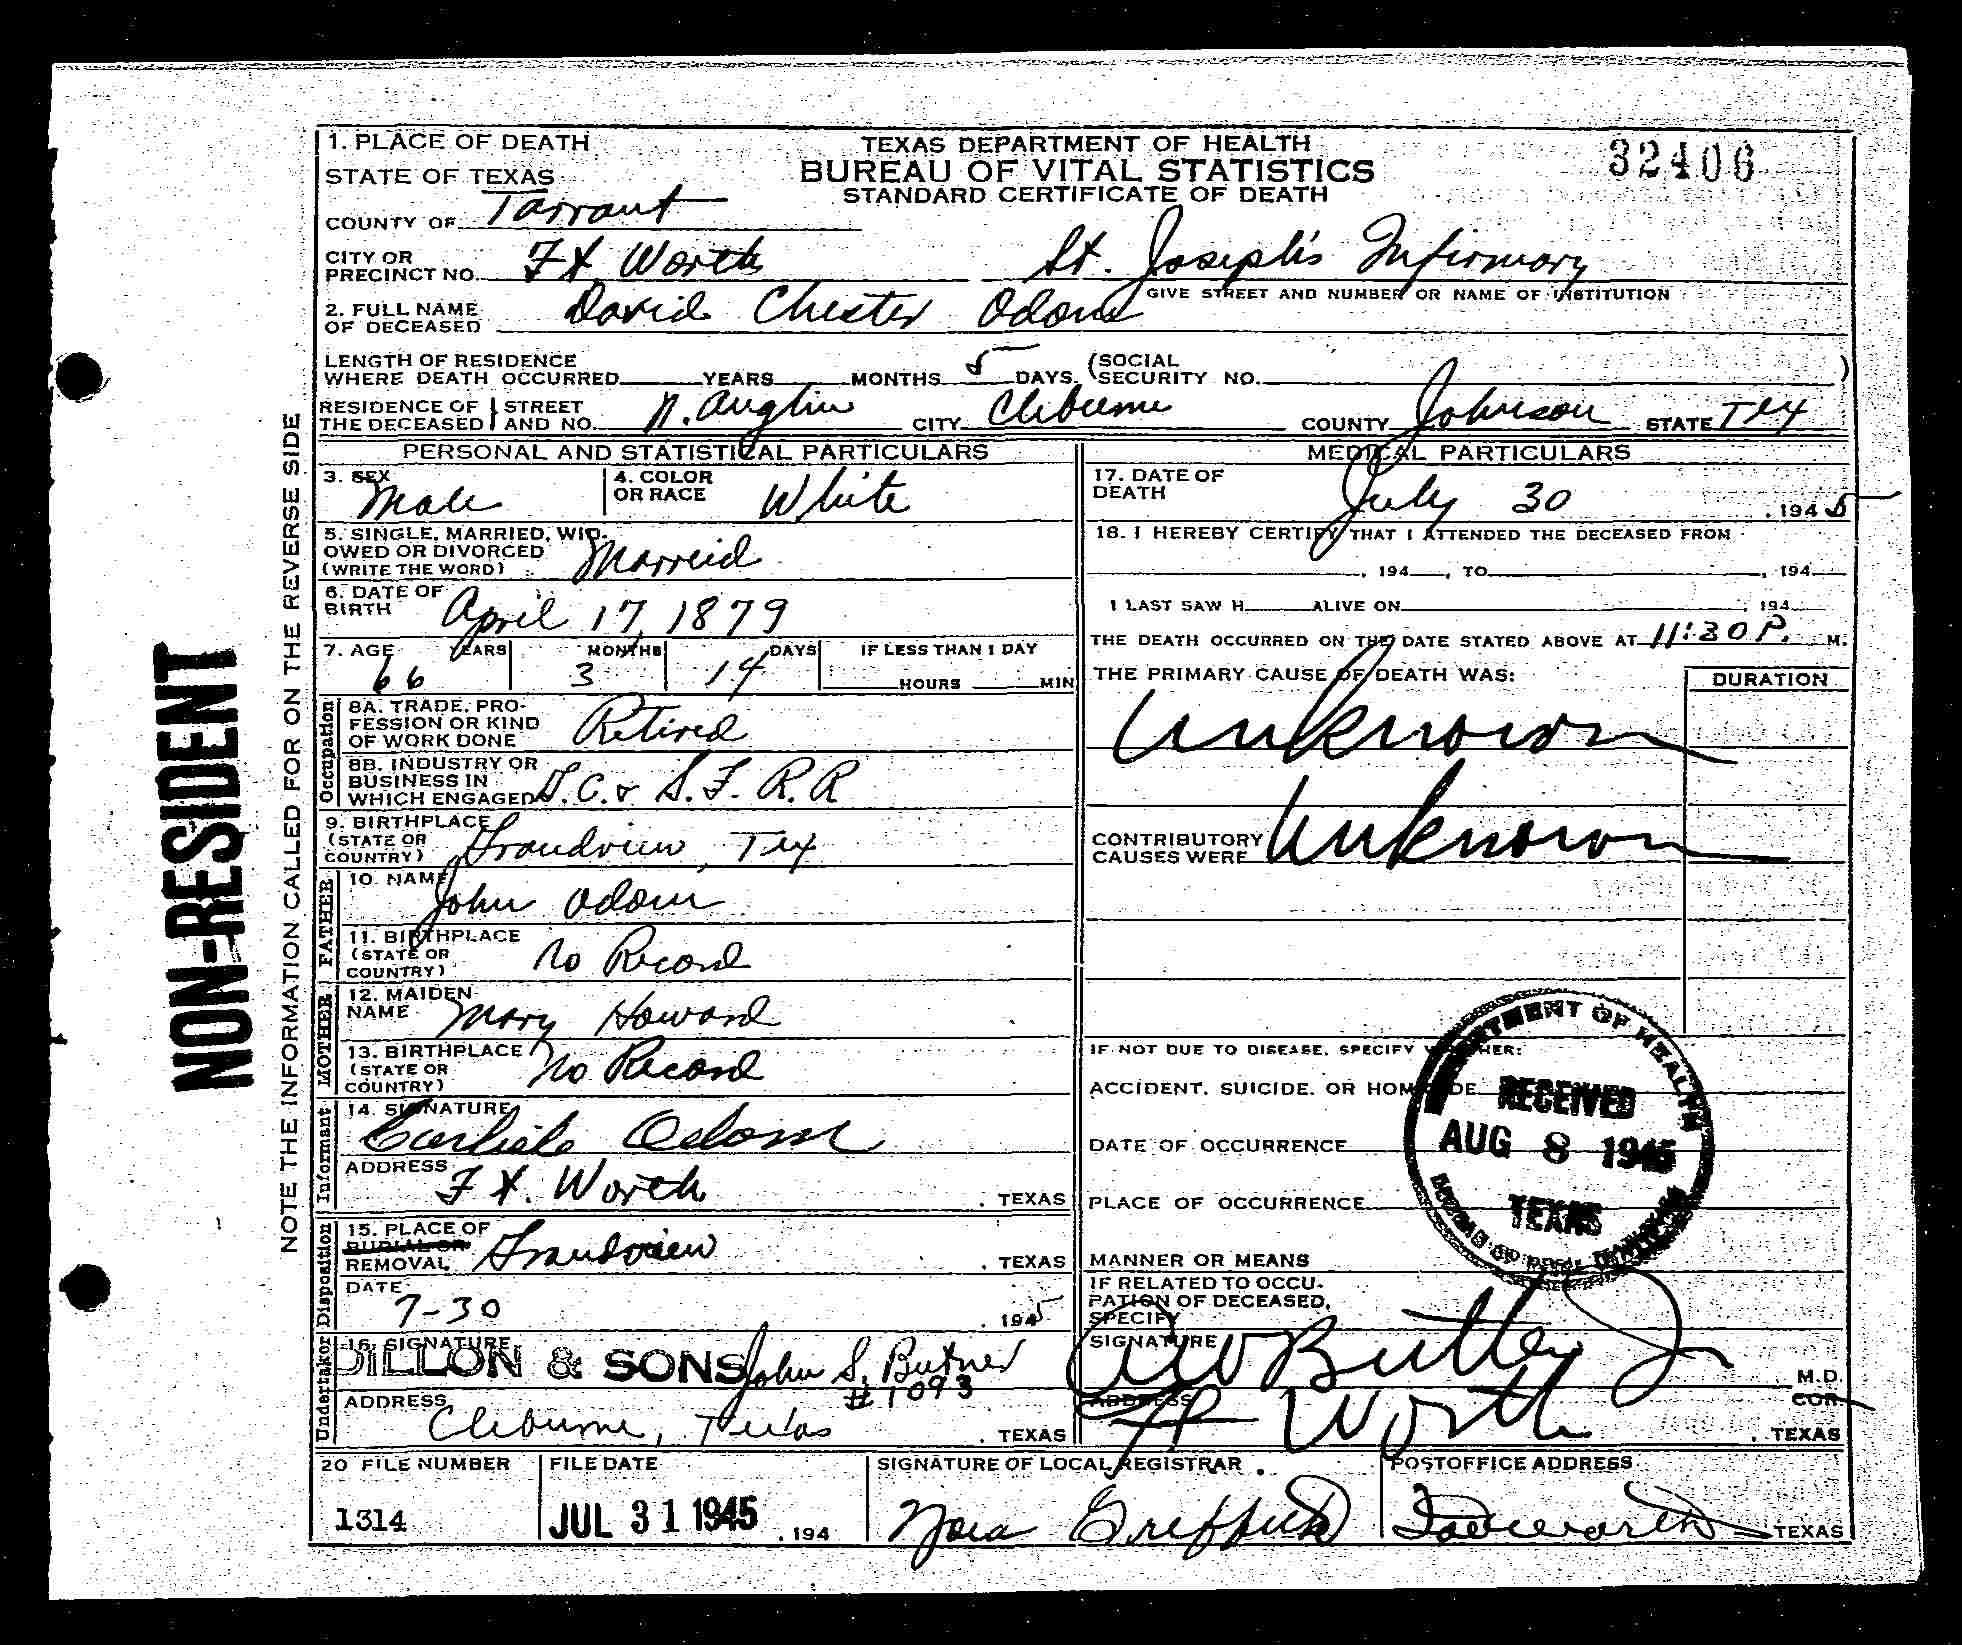 NON-RESIDENT
NOTE THE INFORMATION CALLED FOR ON THE REVERSE SIDE
1. PLACE OF DEATH
TEXAS DEPARTMENT OF HEALTH
32406
STATE OF TEXAS
BUREAU OF VITAL STATISTICS
STANDARD CERTIFICATE OF DEATH
COUNTY OF Tarrant
CITY OR PRECINCT NO. Ft Worth St. Joseph's Infirmary
GIVE STREET AND NUMBER OR NAME OF INSTITUTION
2. FULL NAME OF DECEASED David Chester Odom
LENGTH OF RESIDENCE WHERE DEATH OCCURRED YEARS MONTHS 5 DAYS. (SOCIAL SECURITY NO. )
RESIDENCE OF THE DECEASED STREET AND NO. N. Anglin CITY Cleburne COUNTY Johnson STATE Tex
PERSONAL AND STATISTICAL PARTICULARS
3. SEX Male
4. COLOR OR RACE White
5. SINGLE, MARRIED, WIDOWED OR DIVORCED (WRITE THE WORD) Marreid
6. DATE OF BIRTH April 17, 1879
7. AGE YEARS MONTHS DAYS IF LESS THAN 1 DAY
66 3 14 HOURS MIN
Occupation
8A. TRADE, PROFESSION OR KIND OF WORK DONE Retired
8B. INDUSTRY OR BUSINESS IN WHICH ENGAGED G. C. & S. F. R. R
9. BIRTHPLACE (STATE OR COUNTRY) Grandview, Tex
FATHER
10. NAME John Odom
11. BIRTHPLACE (STATE OR COUNTRY) No Record
MOTHER
12. MAIDEN NAME Mary Howard
13. BIRTHPLACE (STATE OR COUNTRY) No Record
Informant
14. SIGNATURE Carlisle Odom
ADDRESS Ft. Worth . TEXAS
Disposition
15. PLACE OF BURIAL OR REMOVAL Grandview . TEXAS
DATE 7-30 , 1945
Undertaker
16. SIGNATURE DILLON & SONS John S. Butner #1093
ADDRESS Cleburne, Texas . TEXAS
MEDICAL PARTICULARS
17. DATE OF DEATH July 30 , 1945
18. I HEREBY CERTIFY THAT I ATTENDED THE DECEASED FROM
, 194 , TO , 194
I LAST SAW H ALIVE ON , 194
THE DEATH OCCURRED ON THE DATE STATED ABOVE AT 11:30 P. M.
THE PRIMARY CAUSE OF DEATH WAS: DURATION
Unknown
CONTRIBUTORY CAUSES WERE Unknown
IF NOT DUE TO DISEASE, SPECIFY WHETHER:
ACCIDENT, SUICIDE, OR HOMICIDE
DATE OF OCCURRENCE
PLACE OF OCCURRENCE
MANNER OR MEANS
DEPARTMENT OF HEALTH
RECEIVED
AUG 8 1945
TEXAS
IF RELATED TO OCCUPATION OF DECEASED, SPECIFY
SIGNATURE CW Butler Jr M.D.
COR
ADDRESS Ft Worth . TEXAS
20 FILE NUMBER
1314
FILE DATE
JUL 31 1945 . 194
SIGNATURE OF LOCAL REGISTRAR
POSTOFFICE ADDRESS
TEXAS